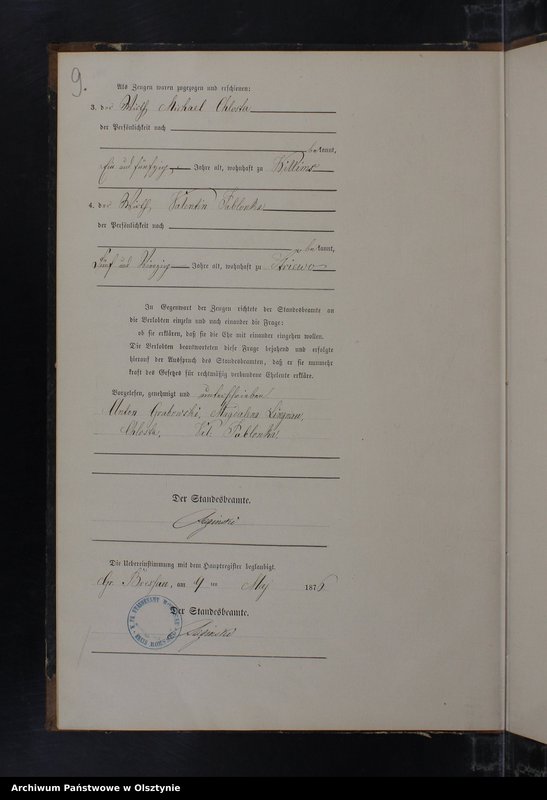 9.
Als Zeugen waren zugezogen und erschienen:
3. der Wirth Michael Chlosta
der Persönlichkeit nach
bekannt,
Ein und fünfzig Jahre alt, wohnhaft zu Willims
4. der Wirth Valentin Jablonka
der Persönlichkeit nach
bekannt,
Fünf und Jahre alt, wohnhaft zu
In Gegenwart der Zeugen richtete der Standesbeamte an
die Verlobten einzeln und nach einander die Frage:
ob sie erklären, daß sie die Ehe mit einander eingehen wollen.
Die Verlobten beantworteten diese Frage bejahend und erfolgte
hierauf der Ausspruch des Standesbeamten, daß er sie nunmehr
kraft des Gesetzes für rechtmäßig verbundene Eheleute erkläre.
Vorgelesen, genehmigt und unterschrieben
Anton Grabowski, Magdalena
Chlosta, Val: Jablonka
Der Standesbeamte.
Die Uebereinstimmung mit dem Hauptregister beglaubigt.
Gr. Bössau, am 9 ten Mai 1876
Der Standesbeamte.
Archiwum Państwowe w Olsztynie